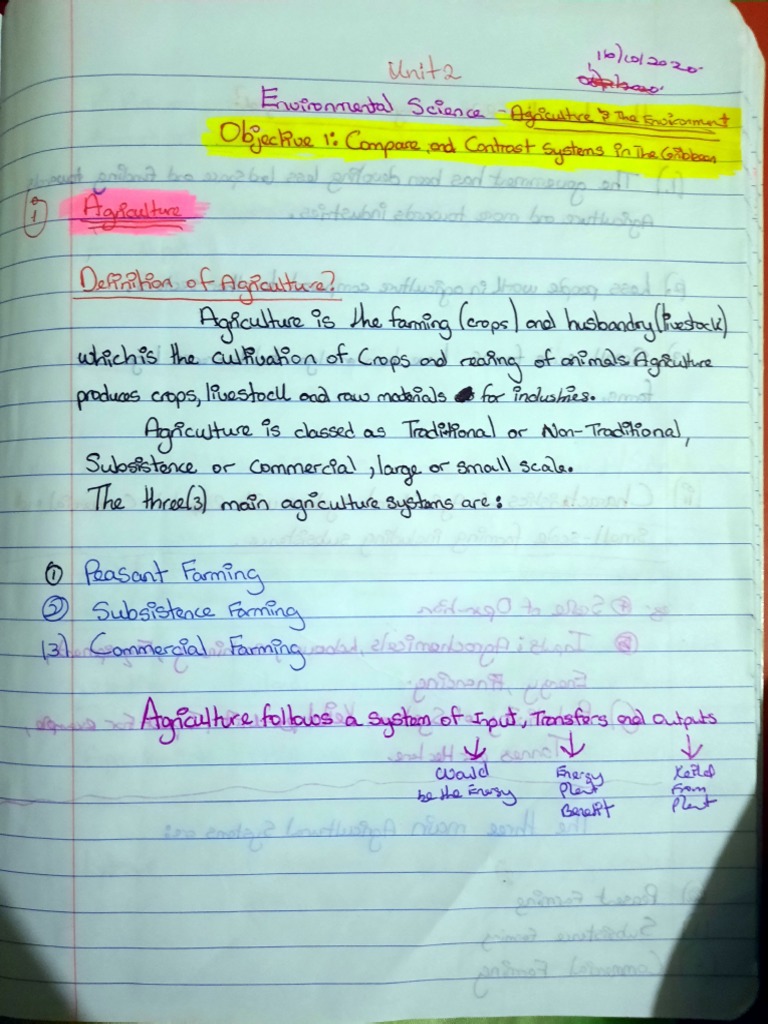 Unit 2
16/10/2020
Environmental Science - Agriculture & The Environment
Objective 1: Compare and Contrast Systems in The Caribbean
1 Agriculture
Definition of Agriculture?
Agriculture is the farming (crops) and husbandry (livestock)
which is the cultivation of Crops and rearing of animals. Agriculture
produces crops, livestock and raw materials for industries.
Agriculture is classed as Traditional or Non-Traditional,
Subsistence or Commercial, large or small scale.
The three(3) main agriculture systems are:
① Peasant Farming
② Subsistence Farming
(3) Commercial Farming
Agriculture follows a system of Input, Transfers and outputs
Would Energy
be the Energy Plant From
Benefit Plant